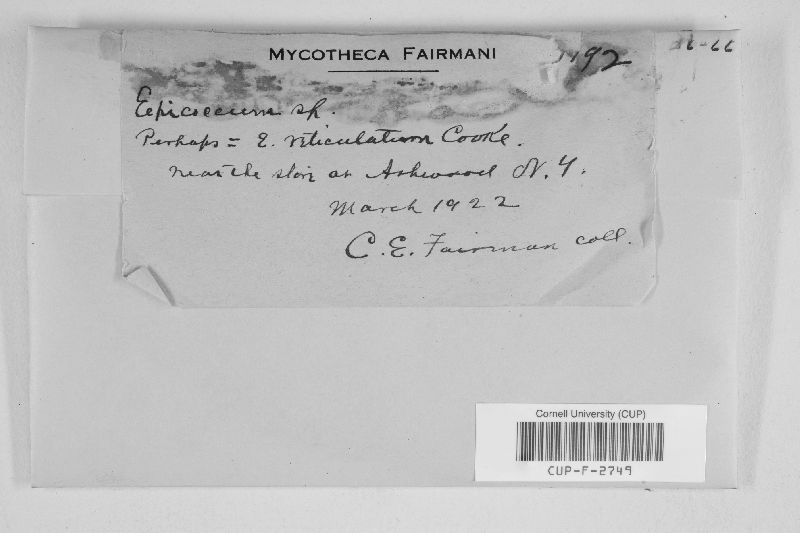 MYCOTHECA FAIRMANI
Epicoccum sp.
Perhaps = E. reticulatum Cooke.
near the store at Ashwood N. Y.
March 1922
C. E. Fairman coll.
Cornell University (CUP)
CUP-F-2749